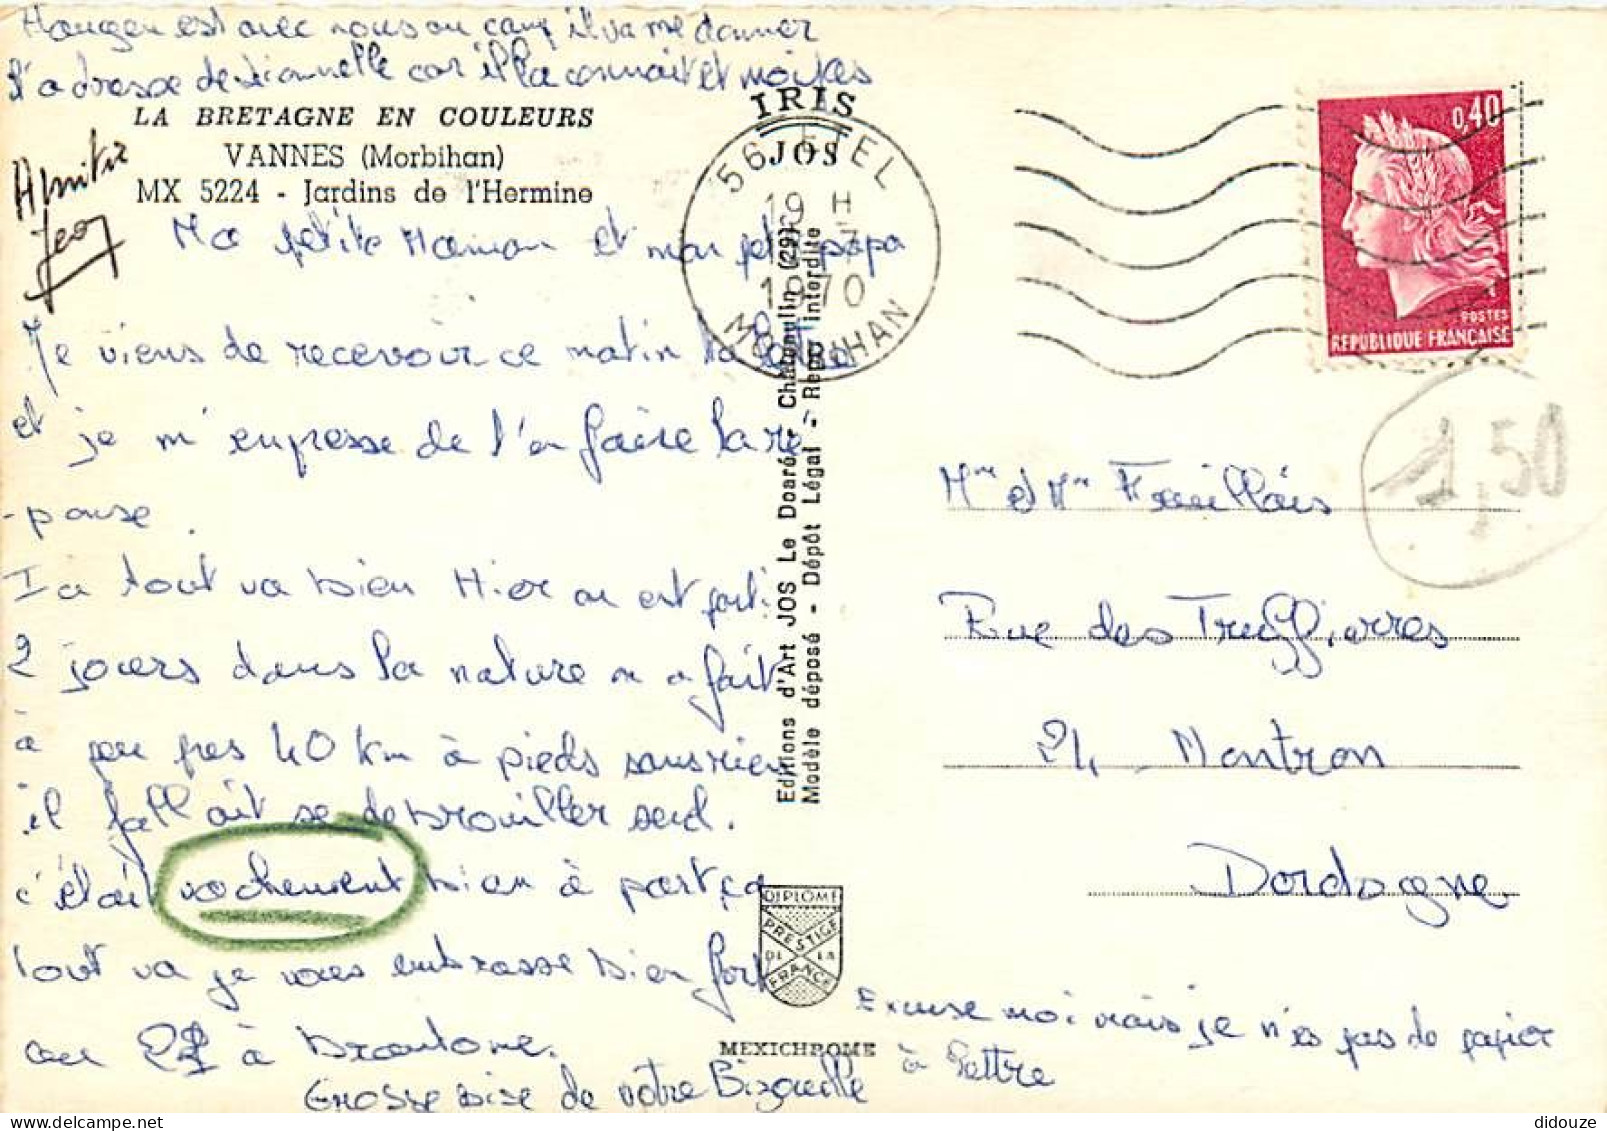 est avec nous au camp il va me donner
l'adresse de car il la connait et
LA BRETAGNE EN COULEURS
VANNES (Morbihan)
MX 5224 - Jardins de l'Hermine
IRIS
JOS
56 ETEL
19 H
1970
MORBIHAN
0,40
POSTES
REPUBLIQUE FRANÇAISE
Ma petite Maman et mon petit papa
Je viens de recevoir ce matin la lettre
et je m'empresse de l'en faire la ré
-ponse.
Ia tout va bien Hier on est parti
2 jours dans la nature on a fait
à peu pres 40 km à pieds sans rien
il fallait se debrouiller seul.
c'était vachement bien à part ça
tout va je vous embrasse bien fort
au à Brantome.
Grosse bise de votre
Excuse moi mais je n'es pas de papier
à lettre
Editions d'Art JOS Le Doaré - Chateaulin (29)
Modèle déposé - Dépôt Légal - Repr. interdite
DIPLOME
PRESTIGE
DE LA
FRANCE
MEXICHROME
1,50
Mme et Mr Feuillais
Rue des Truffierres
24 Nontron
Dordogne
didouze